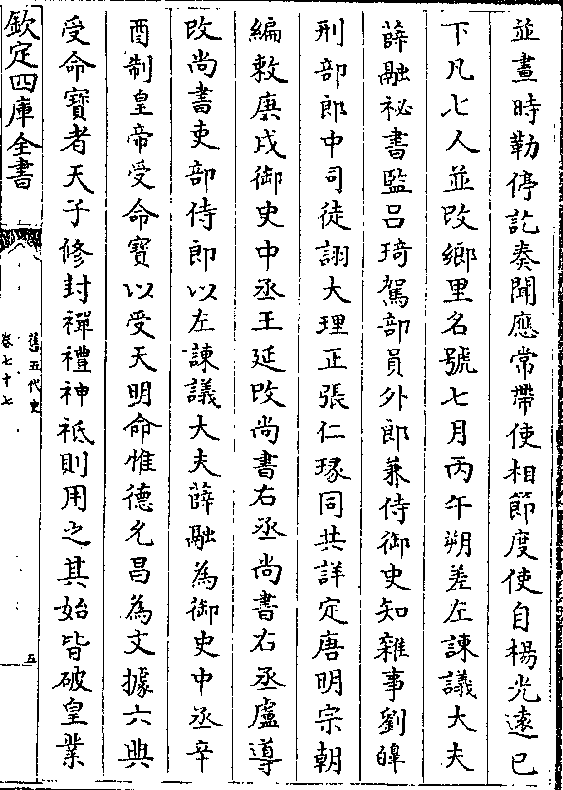 並畫時勒停訖奏聞應常帶使相節度使自楊光遠已
下凡七人並改鄉里名號七月丙午朔差左諫議大夫
薛融祕書監呂琦駕部員外郎兼侍御史知雜事劉皥
刑部郎中司徒詡大理正張仁瑑同共詳定唐明宗朝
編敕庚戌御史中丞王延改尚書右丞尚書右丞盧導
改尚書吏部侍郎以左諫議大夫薛融為御史中丞辛
酉制皇帝受命寶以受天明命惟德允昌為文據六典
受命寶者天子修封禪禮神祇則用之其始皆破皇業
欽定四庫全書
舊五代史
卷七十七
五